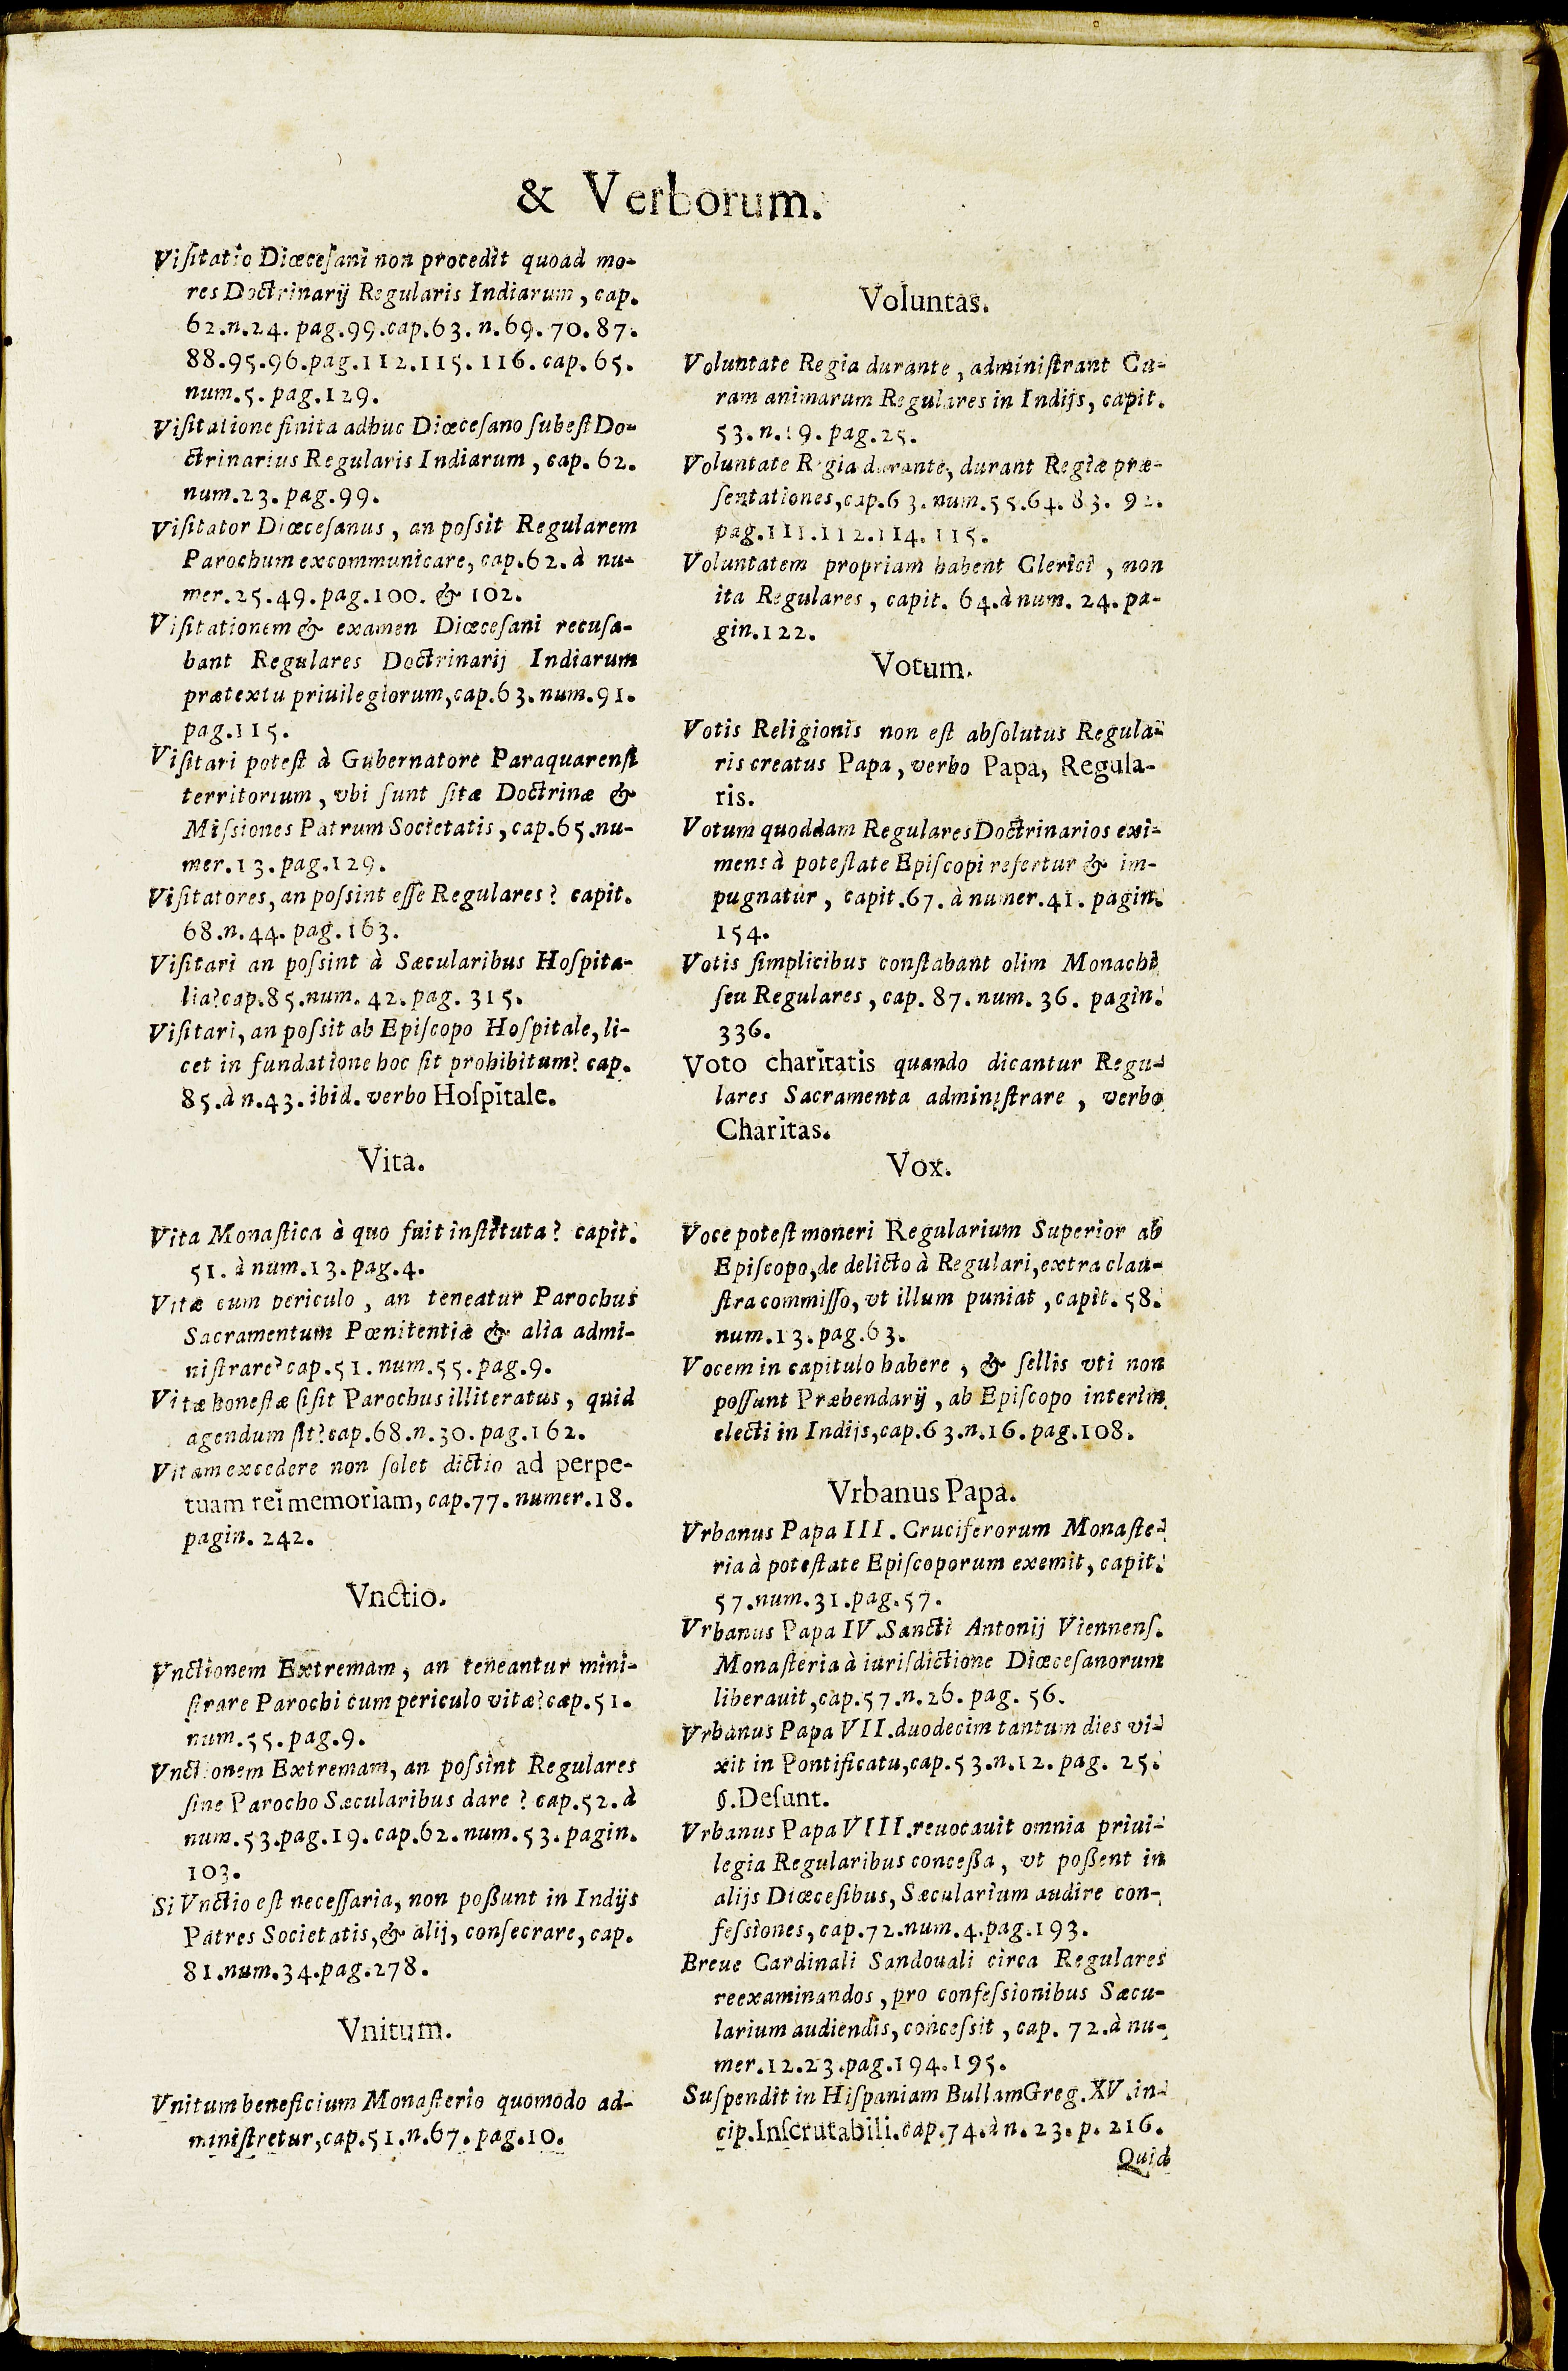 & Verborum.
Viſitatio Diœceſani non procedit quoad mo-
res Doctrinarij Regularis Indiarum, cap.
62.n.24. pag.99.cap.63. n.69.70.87.
88.95.96.pag.112.115.116.cap.65.
num.5.pag.129.
Viſitatione finita adhuc Diœceſano ſubeſt Do-
ctrinarius Regularis Indiarum, cap.62.
num.23.pag.99.
Viſitator Diœceſanus, an poſsit Regularem
Parochum excommunicare, cap.62. à nu-
mer.25.49.pag.100. & 102.
Viſitationem & examen Diœceſani recuſa-
bant Regulares Doctrinarij Indiarum
prætextu priuilegiorum, cap.63.num.91.
pag.115.
Viſitari poteſt à Gubernatore Paraquarenſi
territorium, vbi ſunt ſitæ Doctrinæ &
Miſsiones Patrum Societatis, cap.65.nu-
mer.13.pag.129.
Viſitatores, an poſsint eſſe Regulares? capit.
68.n.44.pag.163.
Viſitari an poſsint à Sæcularibus Hoſpita-
lia? cap.85.num.42.pag.315.
Viſitari, an poſsit ab Epiſcopo Hoſpitale, li-
cet in fundatione hoc ſit prohibitum? cap.
85.à n.43.ibid.verbo Hoſpitale.
Vita.
Vita Monaſtica à quo fuit inſtituta? capit.
51. à num.13.pag.4.
Vitæ cum periculo, an teneatur Parochus
Sacramentum Pœnitentiæ & alia admi-
niſtrare? cap.51.num.55.pag.9.
Vitæ honeſtæ ſi ſit Parochus illiteratus, quid
agendum ſit? cap.68.n.30.pag.162.
Vitam excedere non ſolet dictio ad perpe-
tuam rei memoriam, cap.77.numer.18.
pagin.242.
Vnctio.
Vnctionem Extremam, an teneantur mini-
ſtrare Parochi cum periculo vitæ? cap.51.
num.55.pag.9.
Vnctionem Extremam, an poſsint Regulares
ſine Parocho Sæcularibus dare? cap.52.à
num.53.pag.19.cap.62.num.53.pagin.
103.
Si Vnctio eſt neceſſaria, non poßunt in Indijs
Patres Societatis, & alij, conſecrare, cap.
81.num.34.pag.278.
Vnitum.
Vnitum beneficium Monaſterio quomodo ad-
miniſtretur, cap.51.n.67.pag.10.
Voluntas.
Voluntate Regia durante, adminiſtrant Cu-
ram animarum Regulares in Indijs, capit.
53.n.19.pag.25.
Voluntate Regia durante, durant Regiæ præ-
ſentationes, cap.63.num.55.64.83.92.
pag.111.112.114.115.
Voluntatem propriam habent Clerici, non
ita Regulares, capit.64.à num.24.pa-
gin.122.
Votum.
Votis Religionis non eſt abſolutus Regula-
ris creatus Papa, verbo Papa, Regula-
ris.
Votum quoddam Regulares Doctrinarios exi-
mens à poteſtate Epiſcopi refertur & im-
pugnatur, capit.67.à numer.41.pagin.
154.
Votis ſimplicibus conſtabant olim Monachi
ſeu Regulares, cap.87.num.36.pagin.
336.
Voto charitatis quando dicantur Regu-
lares Sacramenta adminiſtrare, verbo
Charitas.
Vox.
Voce poteſt moneri Regularium Superior ab
Epiſcopo, de delicto à Regulari, extra clau-
ſtra commiſſo, vt illum puniat, capit.58.
num.13.pag.63.
Vocem in capitulo habere, & ſellis vti non
poſſunt Præbendarij, ab Epiſcopo interim
electi in Indijs, cap.63.n.16.pag.108.
Vrbanus Papa.
Vrbanus Papa III. Cruciferorum Monaſte-
ria à poteſtate Epiſcoporum exemit, capit.
57.num.31.pag.57.
Vrbanus Papa IV.Sancti Antonij Viennenſ.
Monaſteria à iuriſdictione Diœceſanorum
liberauit, cap.57.n.26.pag.56.
Vrbanus Papa VII.duodecim tantum dies vi-
xit in Pontificatu, cap.53.n.12.pag.25.
§.Deſunt.
Vrbanus Papa VIII.reuocauit omnia priui-
legia Regularibus conceßa, vt poßent in
alijs Diœceſibus, Sæcularium audire con-
feſsiones, cap.72.num.4.pag.193.
Breue Cardinali Sandouali circa Regulares
reexaminandos, pro confeſsionibus Sæcu-
larium audiendis, conceſsit, cap.72.à nu-
mer.12.23.pag.194.195.
Suſpendit in Hiſpaniam Bullam Greg.XV.in-
cip.Inſcrutabili.cap.74.à n.23.p.216.
Quid